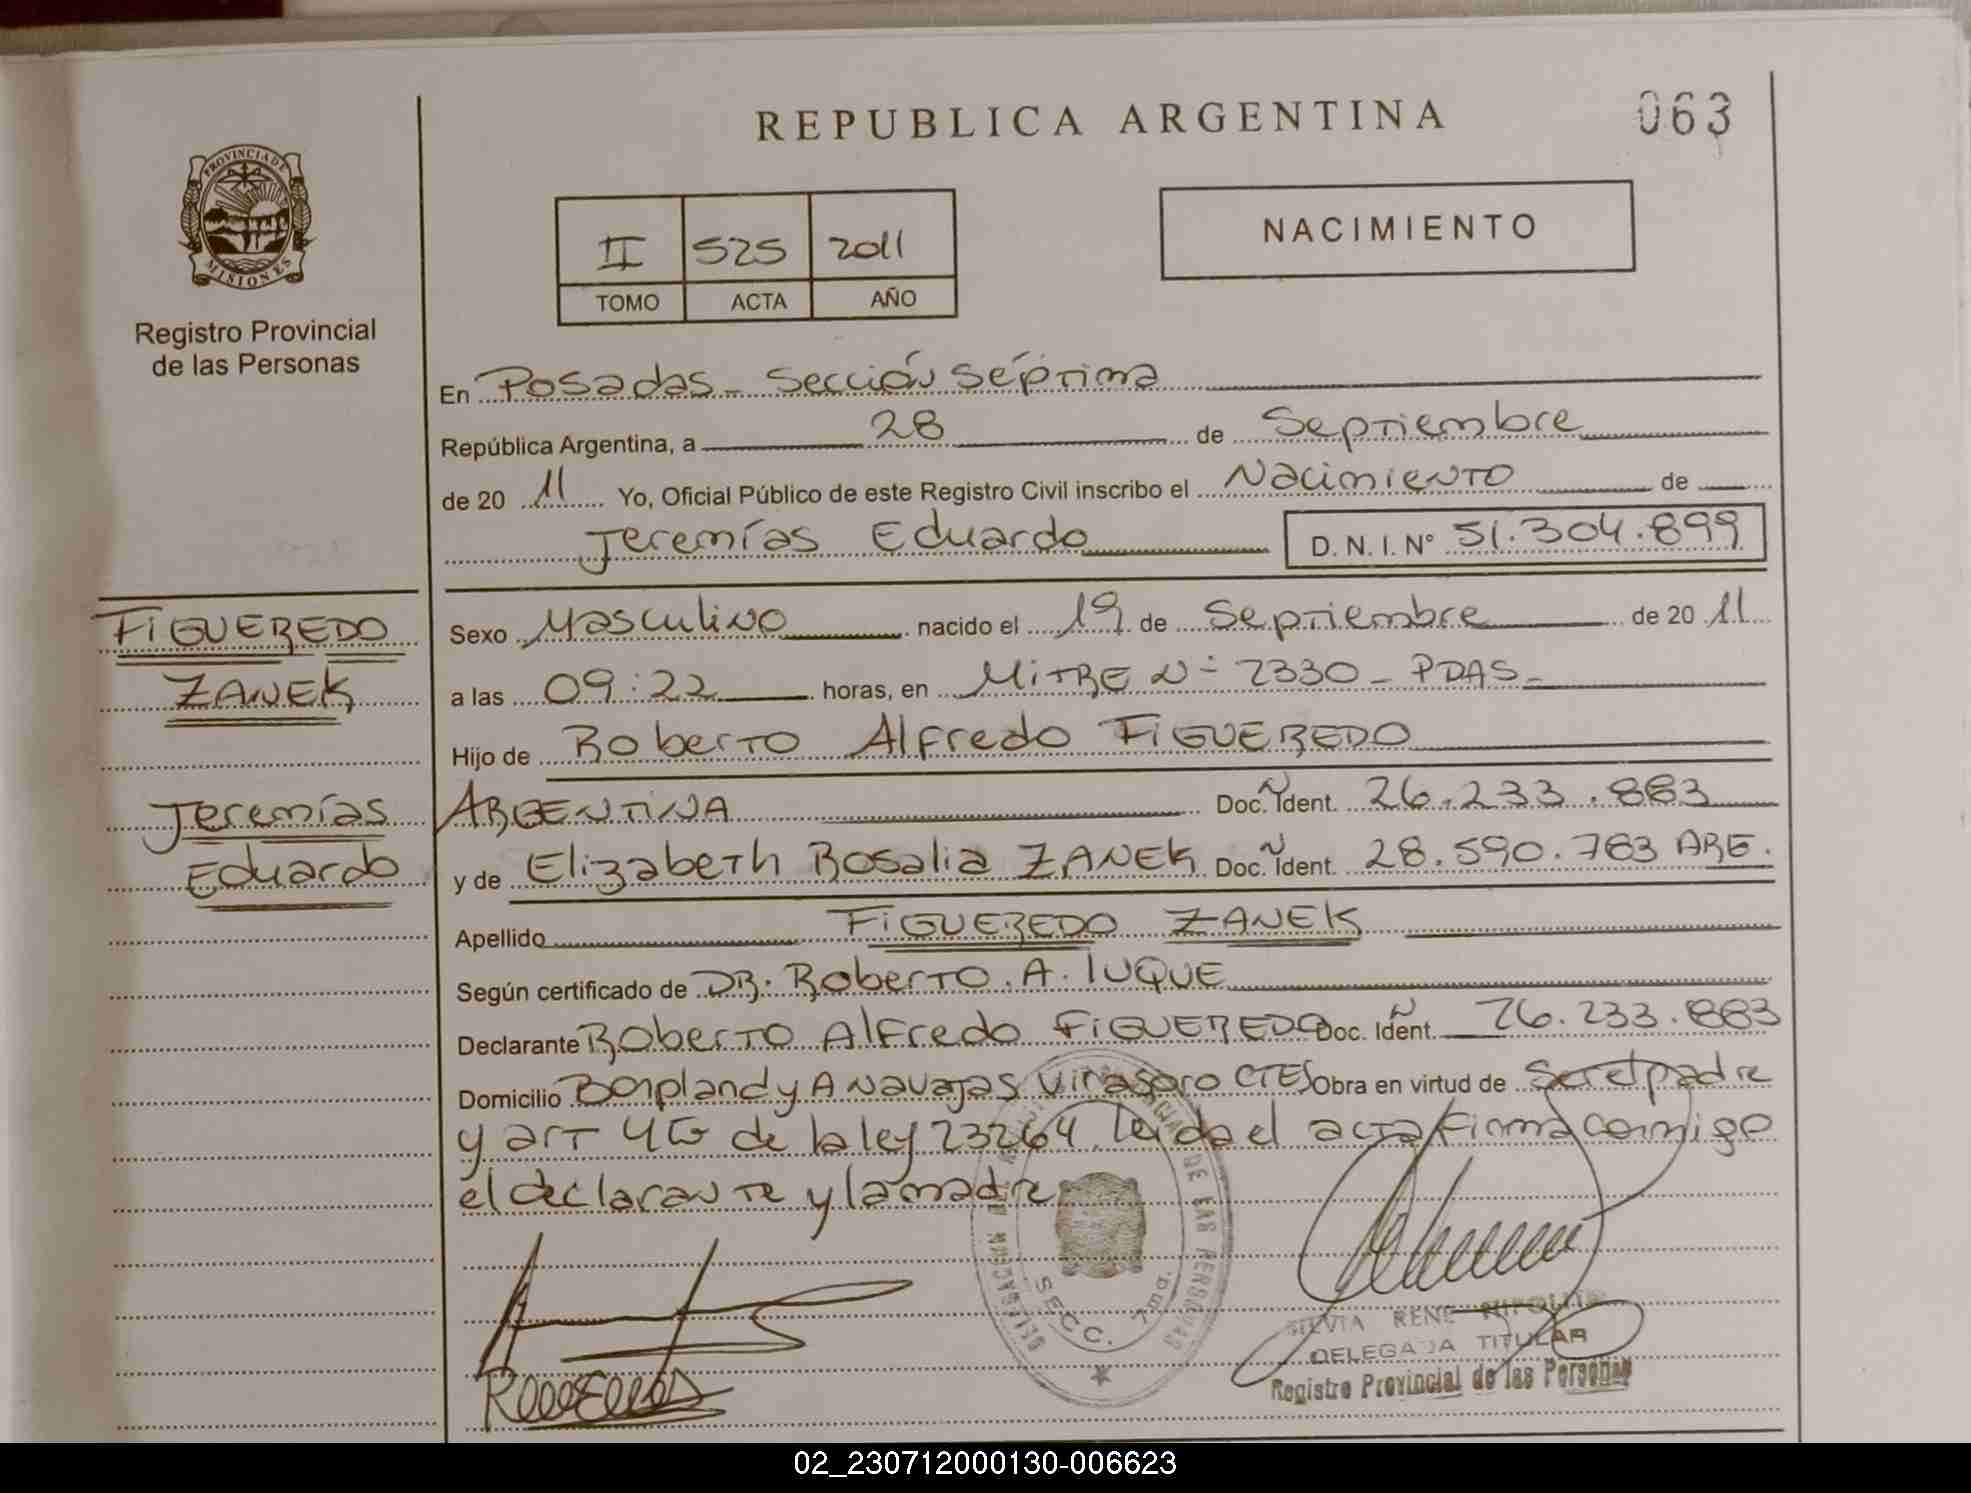 REPUBLICA ARGENTINA
063
PROVINCIA DE
MISIONES
Registro Provincial
de las Personas
II 525 2011
TOMO ACTA AÑO
NACIMIENTO
En Posadas - Sección Séptima
República Argentina, a 28 de Septiembre
de 20 11 Yo, Oficial Público de este Registro Civil inscribo el Nacimiento de
Jeremías Eduardo D.N.I. N° 51.304.899
FIGUEREDO
ZANEK
Jeremías
Eduardo
Sexo Masculino nacido el 19 de Septiembre de 20 11
a las 09:22 horas, en MITRE Nº 2330 - PDAS -
Hijo de Roberto Alfredo FIGUEREDO
ARGENTINA Doc. Ident. 26.233.883
y de Elizabeth Rosalia ZANEK Doc. Ident. 28.590.783 ARG.
Apellido FIGUEREDO ZANEK
Según certificado de DR. Roberto. A. LUQUE
Declarante Roberto Alfredo FIGUEREDO Doc. Ident. 26.233.883
Domicilio Bonpland y A Navajas Virasoro CTES Obra en virtud de Ser el padre
y art de la ley 23264. Leida el acta firma conmigo
el declarante y la madre
SECC. 7ma.
DE LAS PERSONAS
SILVIA RENE
DELEGADA TITULAR
Registro Provincial de las Personas
02_230712000130-006623